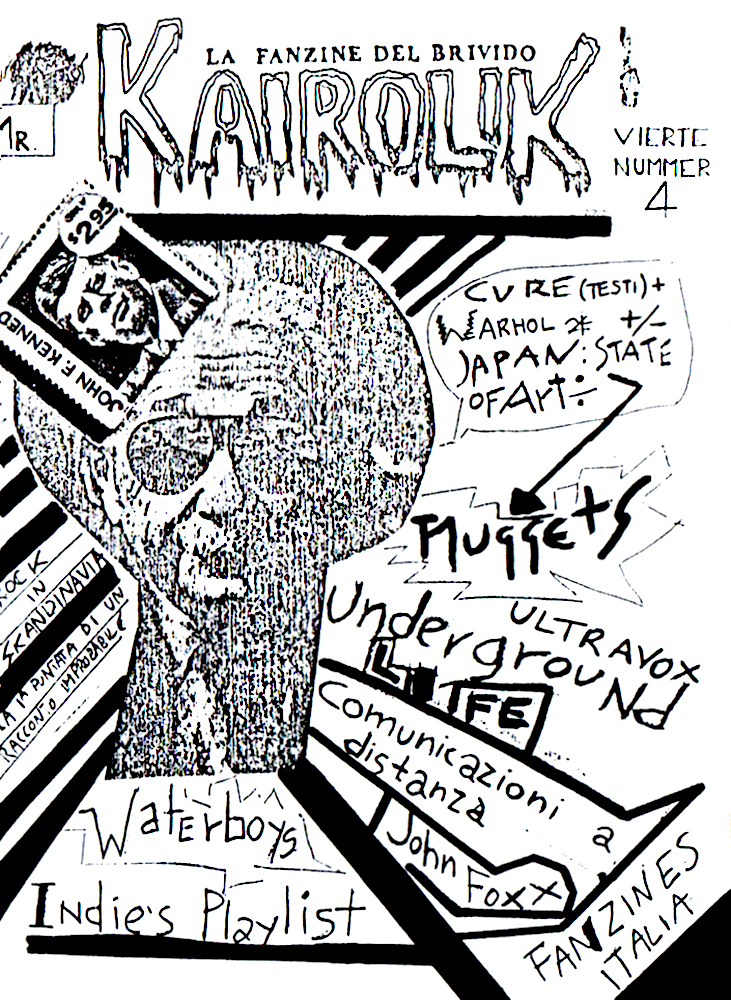 LA FANZINE DEL BRIVIDO
KAIROLIK
1R.
VIERTE
NUMMER
4
$2.95
JOHN F. KENNED
CURE (TESTI) +
WARHOL 2* +/-
JAPAN: STATE
OF Art ÷
NUggEtS
ULTRAVOX
UndergrouNd
LIFE
Comunicazioni a
distanza
John Foxx
ROCK
IN
SKANDINAVIA
LA 1a PUNTATA DI UN
RACCONTO IMPROBABILE
WatErboys
INdie's Playlist
FANZINES
ITALIA